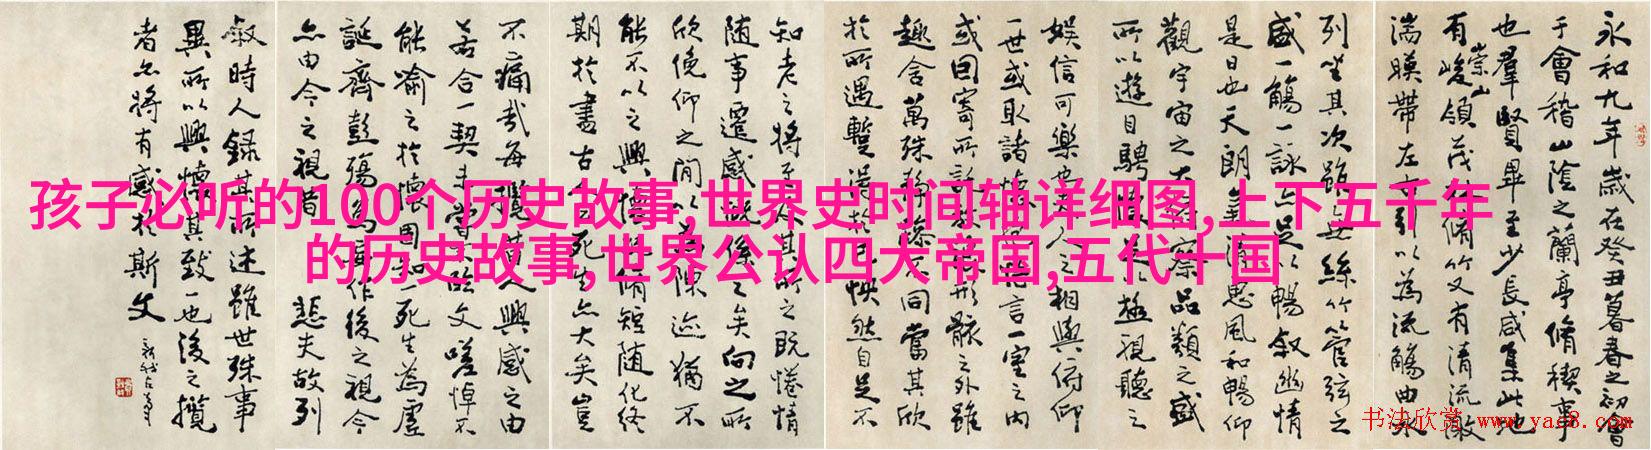 永和九年歲在癸丑暮春之初會
于會稽山陰之蘭亭脩稧事
也羣賢畢至少長咸集此地
有崇山峻領茂林脩竹又有清流激
湍暎帶左右引以為流觴曲水
列坐其次雖無絲竹管弦之
盛一觴一詠亦足以暢敘幽情
是日也天朗氣清惠風和暢仰
觀宇宙之大俯察品類之盛
所以遊目騁懷足以極視聽之
娛信可樂也夫人之相與俯仰
一世或取諸懷抱悟言一室之內
或因寄所託放浪形骸之外雖
趣舍萬殊靜躁不同當其欣
於所遇暫得於己怏然自足不
知老之將至及其所之既惓情
隨事遷感慨係之矣向之所
欣俛仰之間以為陳迹猶不
能不以之興懷況脩短隨化終
期於盡古人云死生亦大矣豈
不痛哉每攬昔人興感之由
若合一契未嘗不臨文嗟悼不
能喻之於懷固知一死生為虛
誕齊彭殤為妄作後之視今
亦由今之視昔悲夫故列
敘時人錄其所述雖世殊事
異所以興懷其致一也後之攬
者亦將有感於斯文
孩子必听的100个历史故事,世界史时间轴详细图,上下五千年
的历史故事,世界公认四大帝国,五代十国
书法欣赏 www.yac8.com